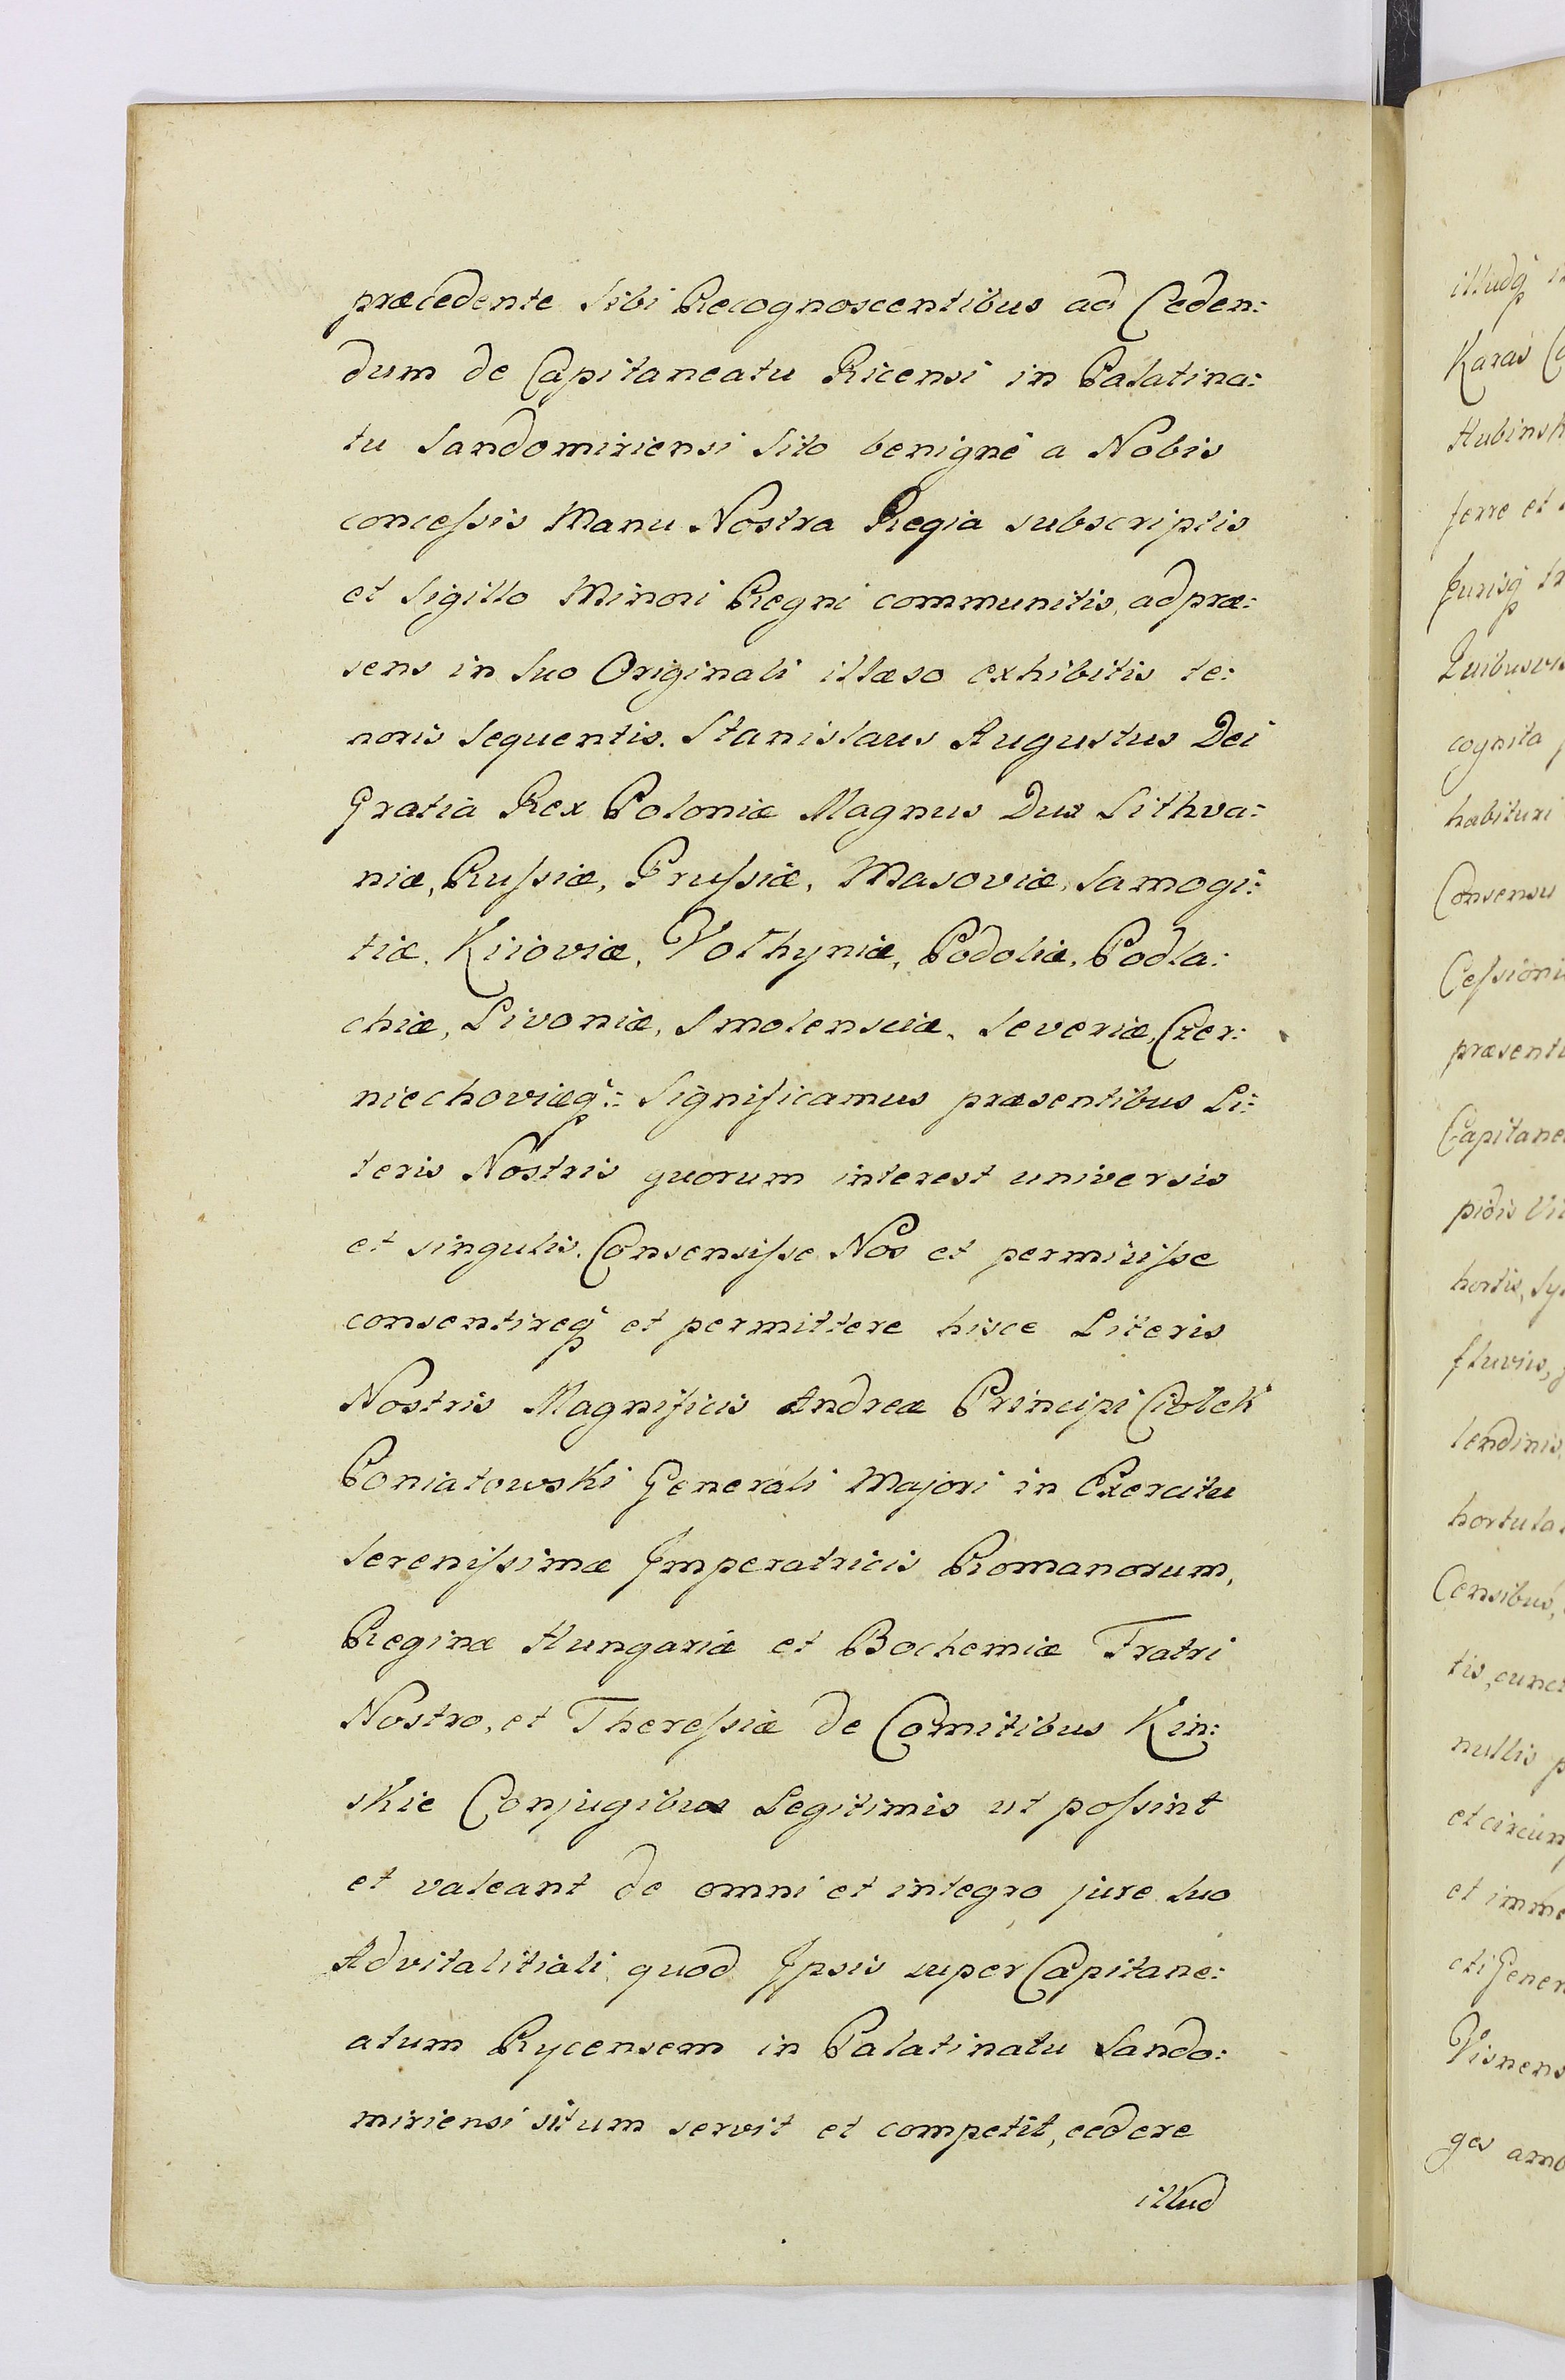 præcedente Sibi Recognoscentibus ad Ceden:
dum de Capitaneatu Ricensi in Palatina:
tu Sandomiriensi Sito benignè a Nobis
conceſsis Manu Nostra Regia subscriptis
et Sigillo Minori Regni communitis, ad præ:
sens in Suo Originali illæso exhibitis te:
noris Sequentis. Stanislaus Augustus Dei
Gratia Rex Poloniæ Magnus Dux Lithva:
niæ, Ruſsiæ, Pruſsiæ, Masoviæ, Samogi:
tiæ, Kiioviæ, Volhyniæ, Podoliæ, Podla:
chiæ, Livoniæ, Smolensciæ, Severiæ, Czer:
niechoviæq̃:: Significamus præsentibus Li:
teris Nostris quorum interest universis
et singulis. Consensiſse Nos et permisiſse
consentireq̃ et permittere hisce Literis
Nostris Magnificis Andreæ Principi Ciołek
Poniatowski Generali Majori in Exercitu
Sereniſsimæ Imperatricis Romanorum,
Reginæ Hungariæ et Bochemiæ Fratri
Nostro, et Thereſsiæ de Comitibus Kin:
skie Conjugibus Legitimis ut poſsint
et valeant de omni et integro jure Suo
Advitalitiali, quod Ipsis super Capitane:
atum Rycensem in Palatinatu Sando:
miriensi situm servit et competit, cedere
illud
illudq̃
Karas
Hubinsk
ferre et
Jurisq̃
Quibusvis
cognita
habituri
Consensu
Ceſsioni
præsenti
Capitane
pidis
hortis,
fluviis,
lendinis
hortula
Censibus,
tis, cunct
nullis
et circum
et imme
cti Gener
Visnens
ges amb